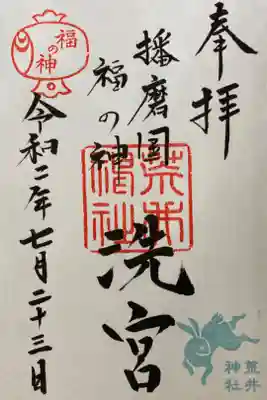 奉拝
播磨国
福の神
荒井神社
洗宮
福の神
令和二年七月二十三日
荒井神社